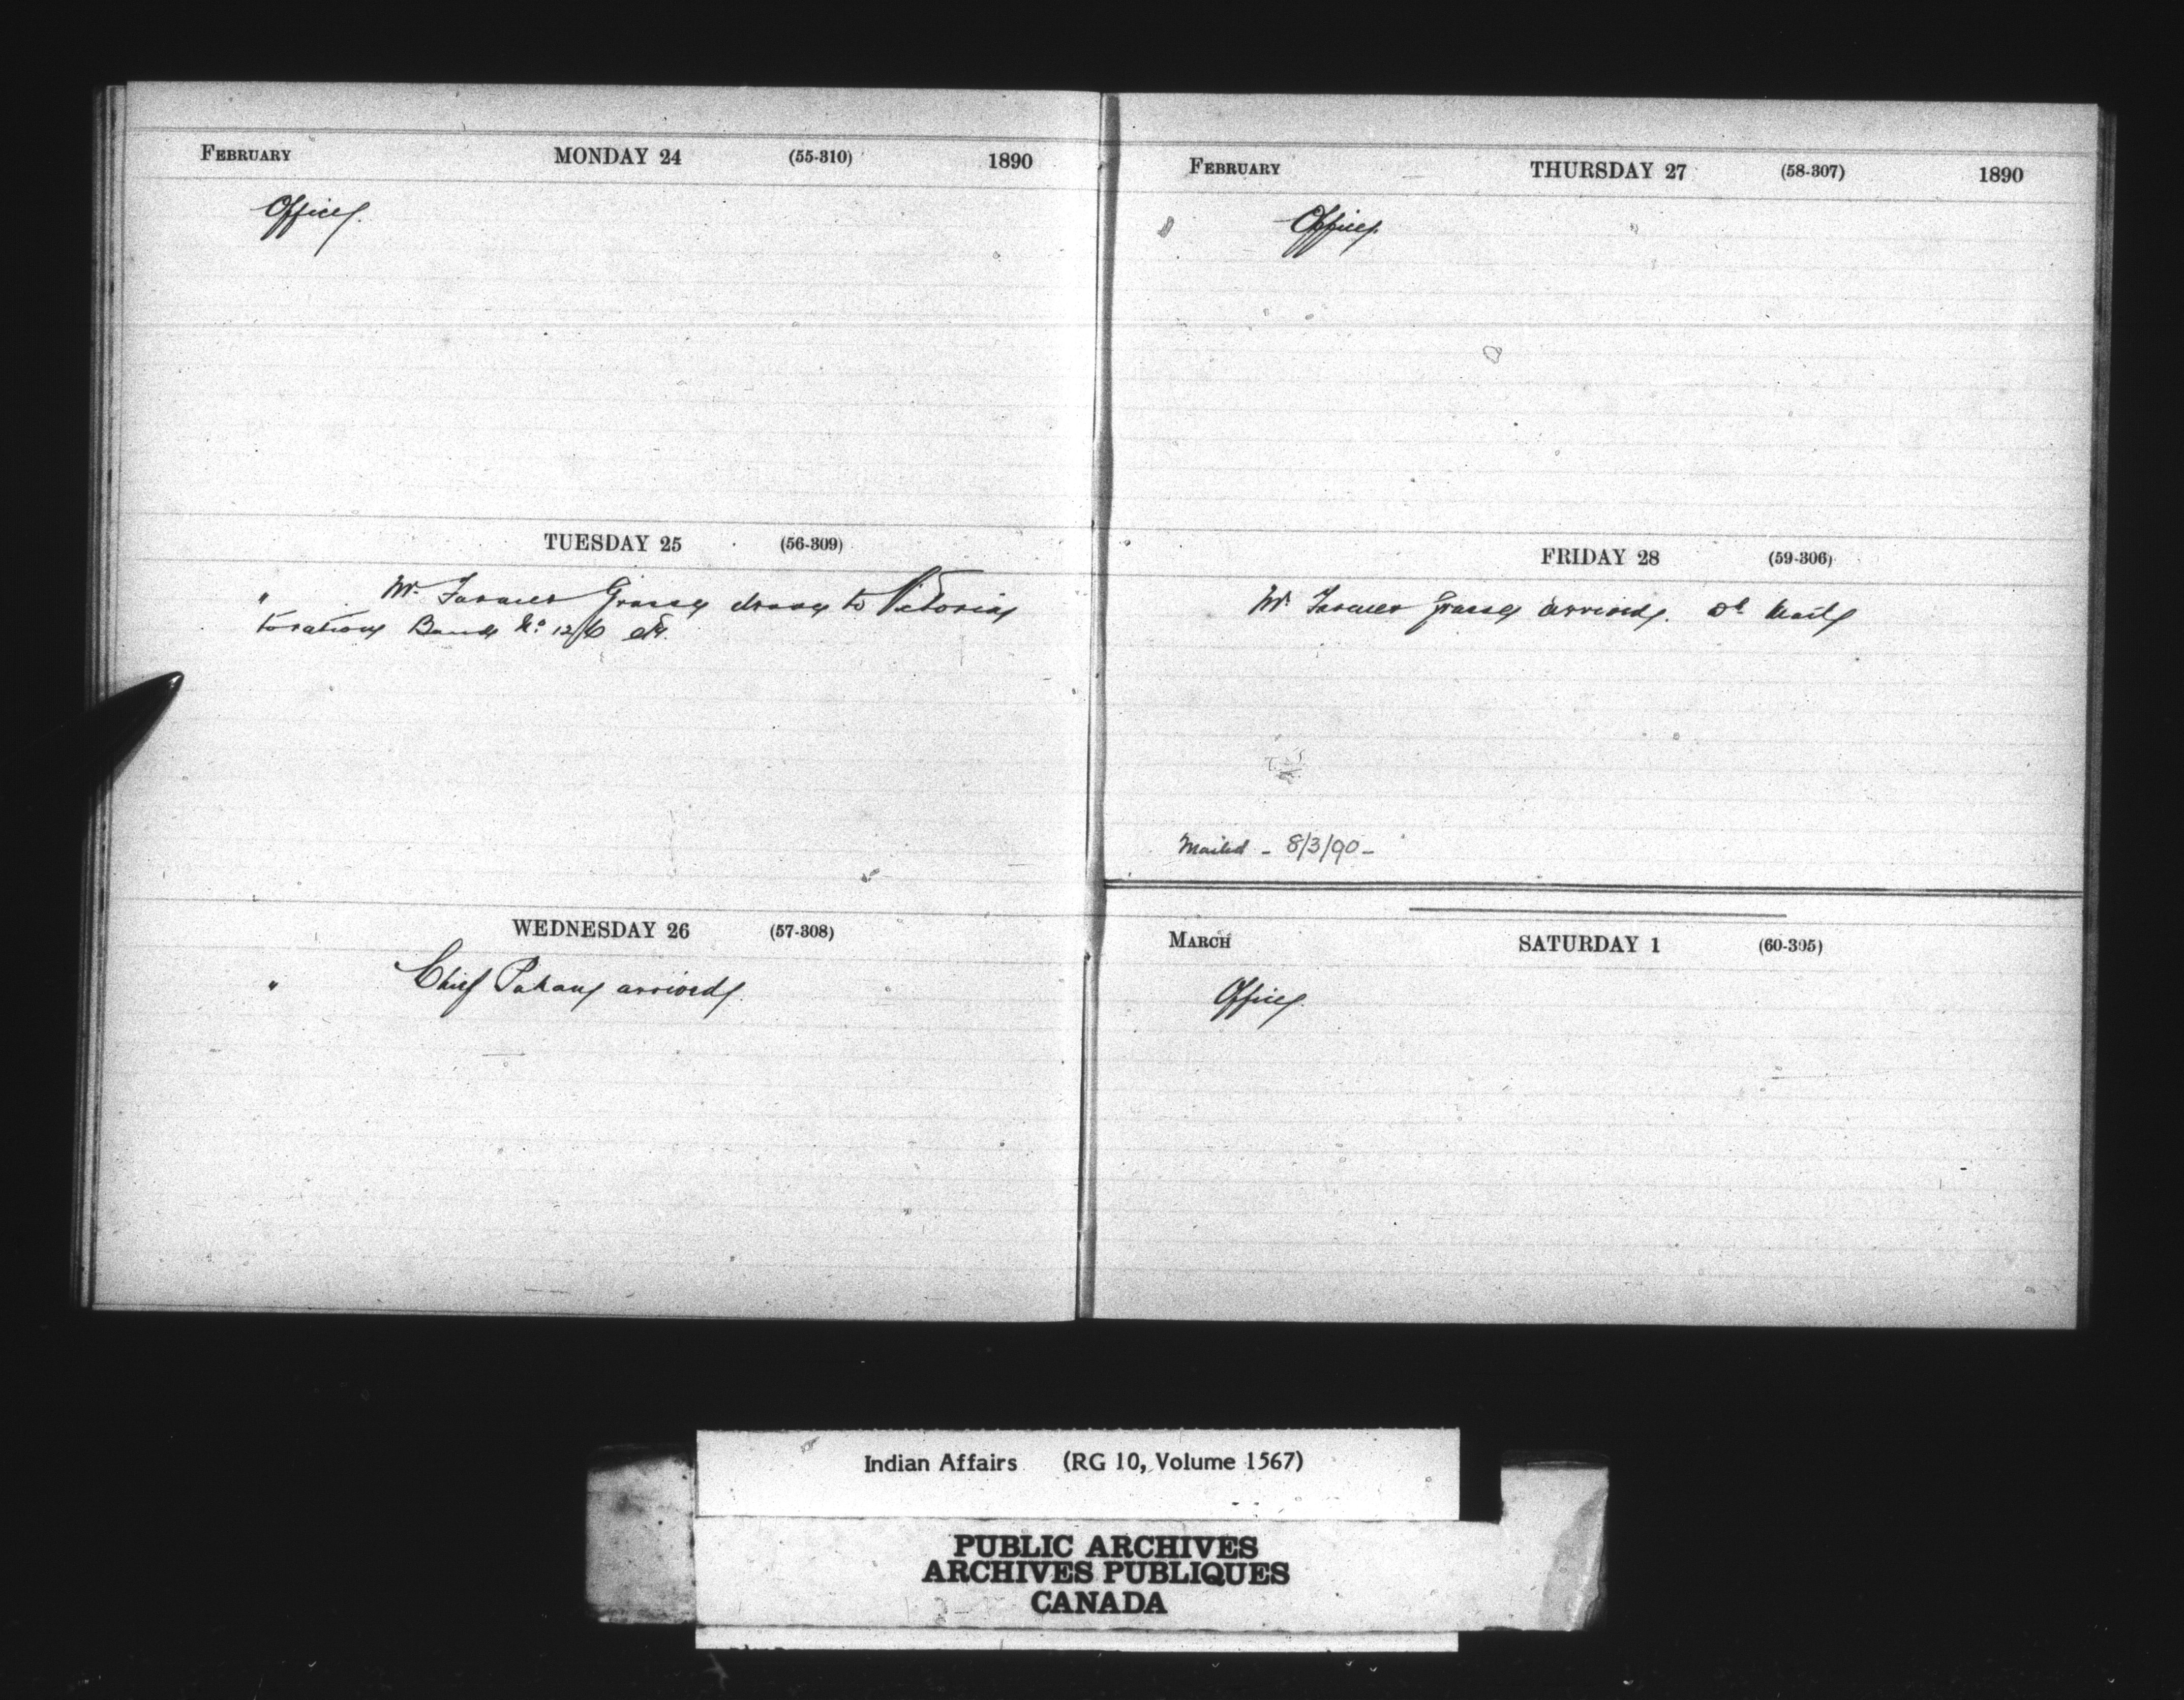 FEBRUARY MONDAY 24 (55-310) 1890
Office.
TUESDAY 25 (56-309)
" Mr. Farmer Grasse drove to Victoria
to ration Band No 12
WEDNESDAY 26 (57-308)
" Chief Pakan arrived.
FEBRUARY THURSDAY 27 (58-307) 1890
Office.
FRIDAY 28 (59-306)
Mr. Farmer Grasse arrived. Mail
Mailed - 8/3/90 -
MARCH SATURDAY 1 (60-305)
Office.
Indian Affairs (RG 10, Volume 1567)
PUBLIC ARCHIVES
ARCHIVES PUBLIQUES
CANADA